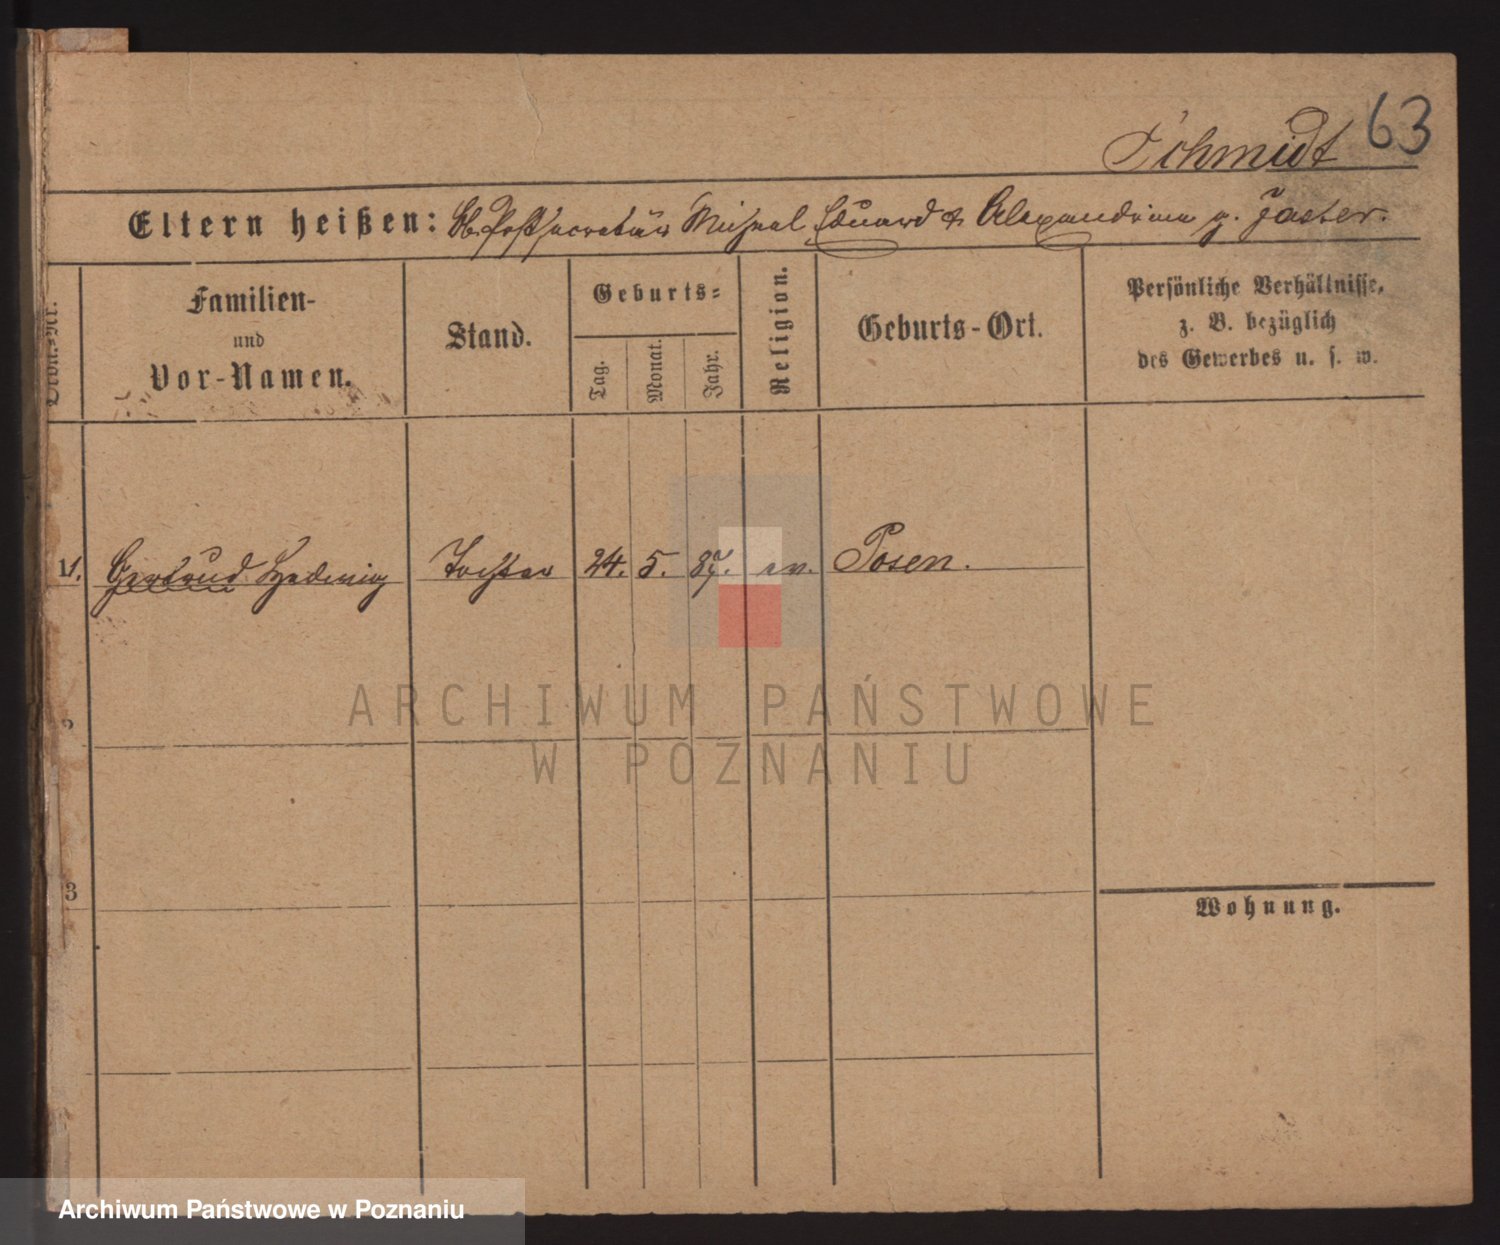 Schmidt 63
Eltern heißen: Ob. Postsecretär Michael Eduard & Alexandrine g. Jaster.
Ordn.-Nr.
Familien-
und
Vor-Namen.
Stand.
Geburts-
Tag.
Monat.
Jahr.
Religion.
Geburts-Ort.
Persönliche Verhältnisse,
z. B. bezüglich
des Gewerbes u. s. w.
Gertrud Hedwig Tochter 24. 5. 87. ev. Posen.
ARCHIWUM PAŃSTWOWE
W POZNANIU
3
Wohnung.
Archiwum Państwowe w Poznaniu